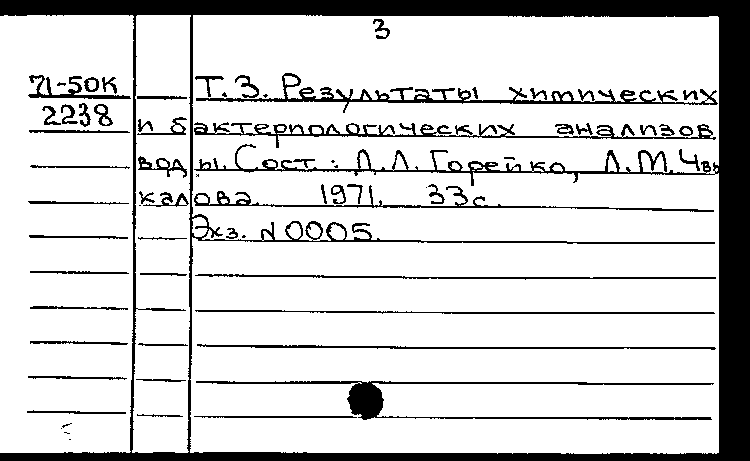 3
71-50К Т. 3. Результаты химических
2238 и бактериологических анализов
воды. Сост.: Д.Л. Горейко, Л.М.
калова. 1971. 33с.
Экз. N0005.